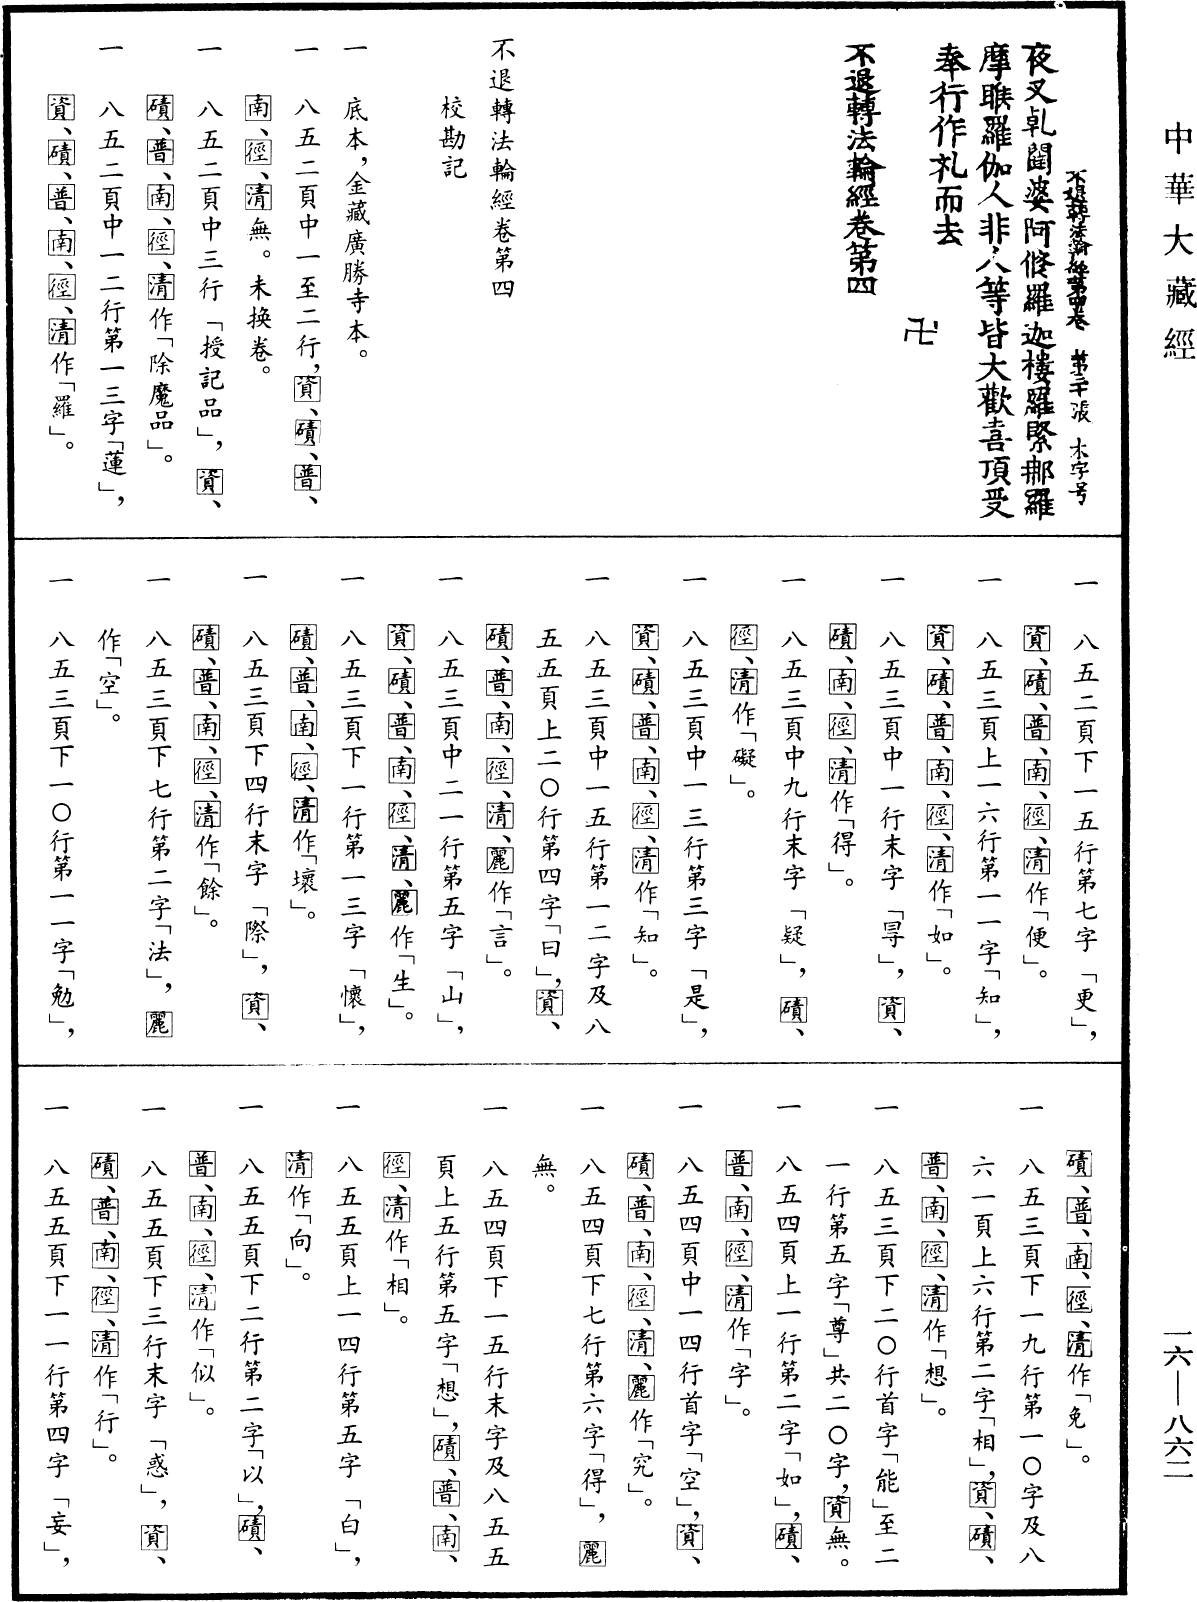 中華大藏經
不退轉法輪經第四卷　第三十張　木字号
夜叉乹闥婆阿脩羅迦樓羅緊那羅
摩睺羅伽人非人等皆大歡喜頂受
奉行作礼而去
卍
不退轉法輪經卷第四
不退轉法輪經卷第四
校勘記
一　底本，金藏廣勝寺本。
一　八五二頁中一至二行，資、磧、普、
南、徑、清無。未换卷。
一　八五二頁中三行「授記品」，資、
磧、普、南、徑、清作「除魔品」。
一　八五二頁中一二行第一三字「蓮」，
資、磧、普、南、徑、清作「羅」。
一　八五二頁下一五行第七字「更」，
資、磧、普、南、徑、清作「便」。
一　八五三頁上一六行第一一字「知」，
資、磧、普、南、徑、清作「如」。
一　八五三頁中一行末字「㝵」，資、
磧、南、徑、清作「得」。
一　八五三頁中九行末字「疑」，磧、
徑、清作「礙」。
一　八五三頁中一三行第三字「是」，
資、磧、普、南、徑、清作「知」。
一　八五三頁中一五行第一二字及八
五五頁上二〇行第四字「曰」，資、
磧、普、南、徑、清、麗作「言」。
一　八五三頁中二一行第五字「山」，
資、磧、普、南、徑、清、麗作「生」。
一　八五三頁下一行第一三字「懷」，
磧、普、南、徑、清作「壞」。
一　八五三頁下四行末字「際」，資、
磧、普、南、徑、清作「餘」。
一　八五三頁下七行第二字「法」，麗
作「空」。
一　八五三頁下一〇行第一一字「勉」，
磧、普、南、徑、清作「免」。
一　八五三頁下一九行第一〇字及八
六一頁上六行第二字「相」，資、磧、
普、南、徑、清作「想」。
一　八五三頁下二〇行首字「能」至二
一行第五字「尊」共二〇字，資無。
一　八五四頁上一行第二字「如」，磧、
普、南、徑、清作「字」。
一　八五四頁中一四行首字「空」，資、
磧、普、南、徑、清、麗作「究」。
一　八五四頁下七行第六字「得」，麗
無。
一　八五四頁下一五行末字及八五五
頁上五行第五字「想」，磧、普、南、
徑、清作「相」。
一　八五五頁上一四行第五字「白」，
清作「向」。
一　八五五頁下二行第二字「以」，磧、
普、南、徑、清作「似」。
一　八五五頁下三行末字「惑」，資、
磧、普、南、徑、清作「行」。
一　八五五頁下一一行第四字「妄」，
一六—八六二